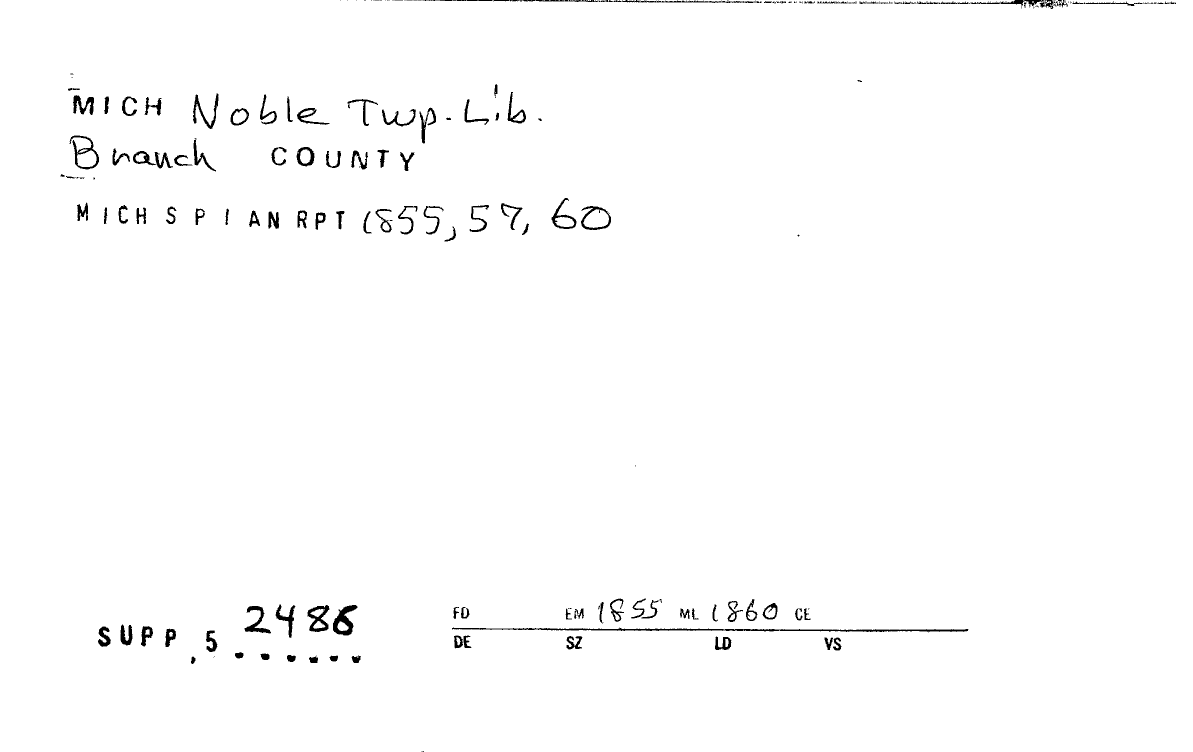 MICH Noble Twp. Lib.
Branch COUNTY
MICH S P I AN RPT 1855, 57, 60
SUPP, 5 2486
FD EM 1855 ML 1860 CE
DE SZ LD VS